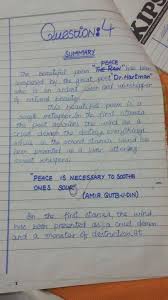 Question: 4
SUMMARY
PEACE
The beautiful poem "The Rain" has been
composed by the great poet "Dr. Hartman"
who is an ardent lover and worshipper
of natural beauty.
This beautiful poem is a
single metaphor. In the first stanza
the poet describes the wind as a
cruel
as the second stanza wind has
been presented as a
sweet whispers.
"PEACE IS NECESSARY TO SOOTHE
ONES SOUL"
(AMIR QUTBUDIN)
In the first stanza, the wind
has been presented as a cruel demon
and a monster of destruction. It
KIPS